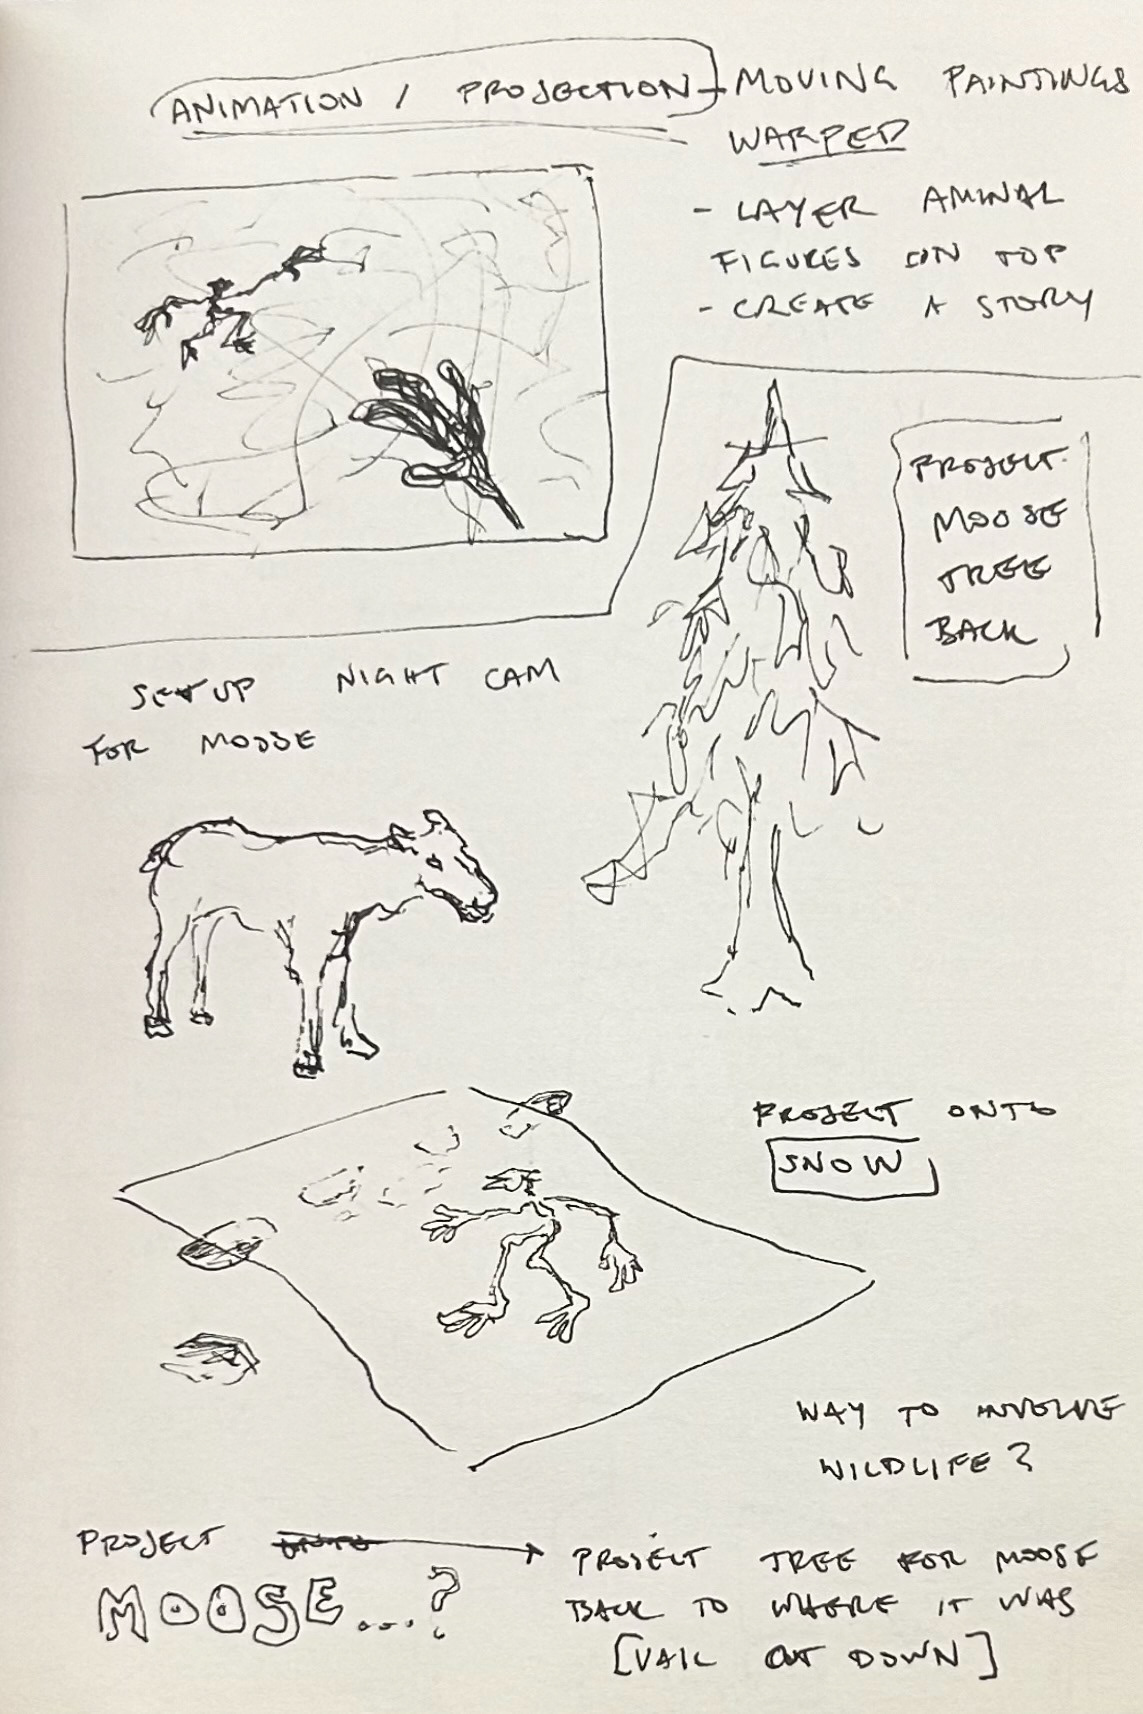 ANIMATION / PROJECTION - MOVING PAINTINGS
WARPED
- LAYER AMINAL
FIGURES ON TOP
- CREATE A STORY
PROJECT
MOOSE
TREE
BACK
SETUP NIGHT CAM
FOR MOOSE
PROJECT ONTO
SNOW
WAY TO INVOLVE
WILDLIFE?
PROJECT ONTO
MOOSE...?
PROJECT TREE FOR MOOSE
BACK TO WHERE IT WAS
[VAIL CUT DOWN]